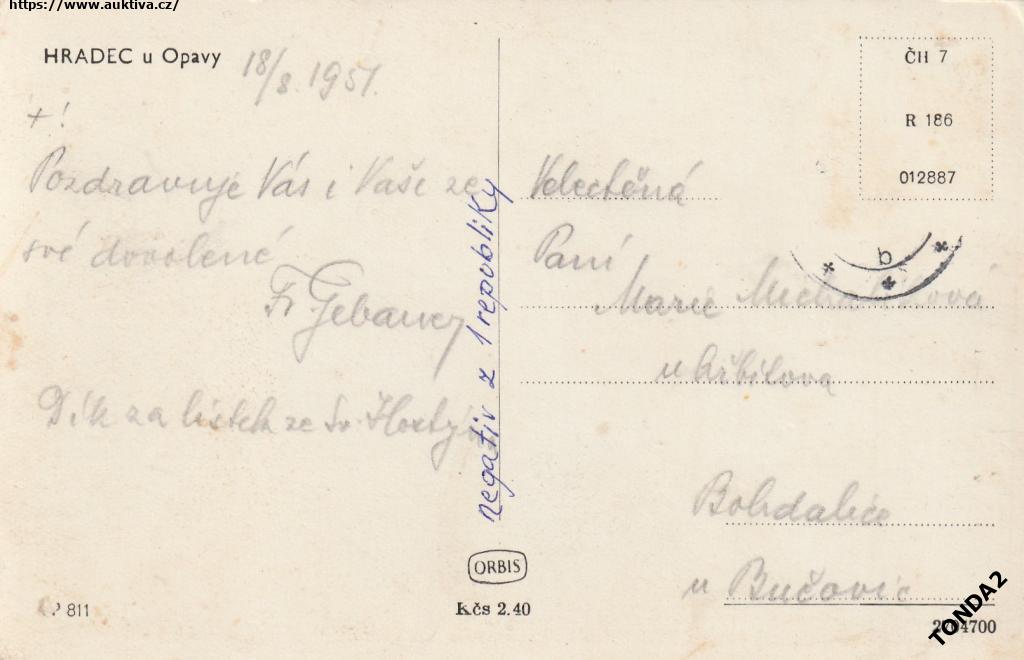 https://www.auktiva.cz/
HRADEC u Opavy
18/8. 1951.
+!
Pozdravuje Vás i Vaše ze
své dovolené
Fr
Dík za lístek ze Sv. Hostýn
negativ z 1 republiky
ČH 7
R 186
012887
b
Velectěná
Paní
Marie
u
Bohdalice
u Bučovic
ORBIS
Kčs 2.40
811
4700
TONDA2